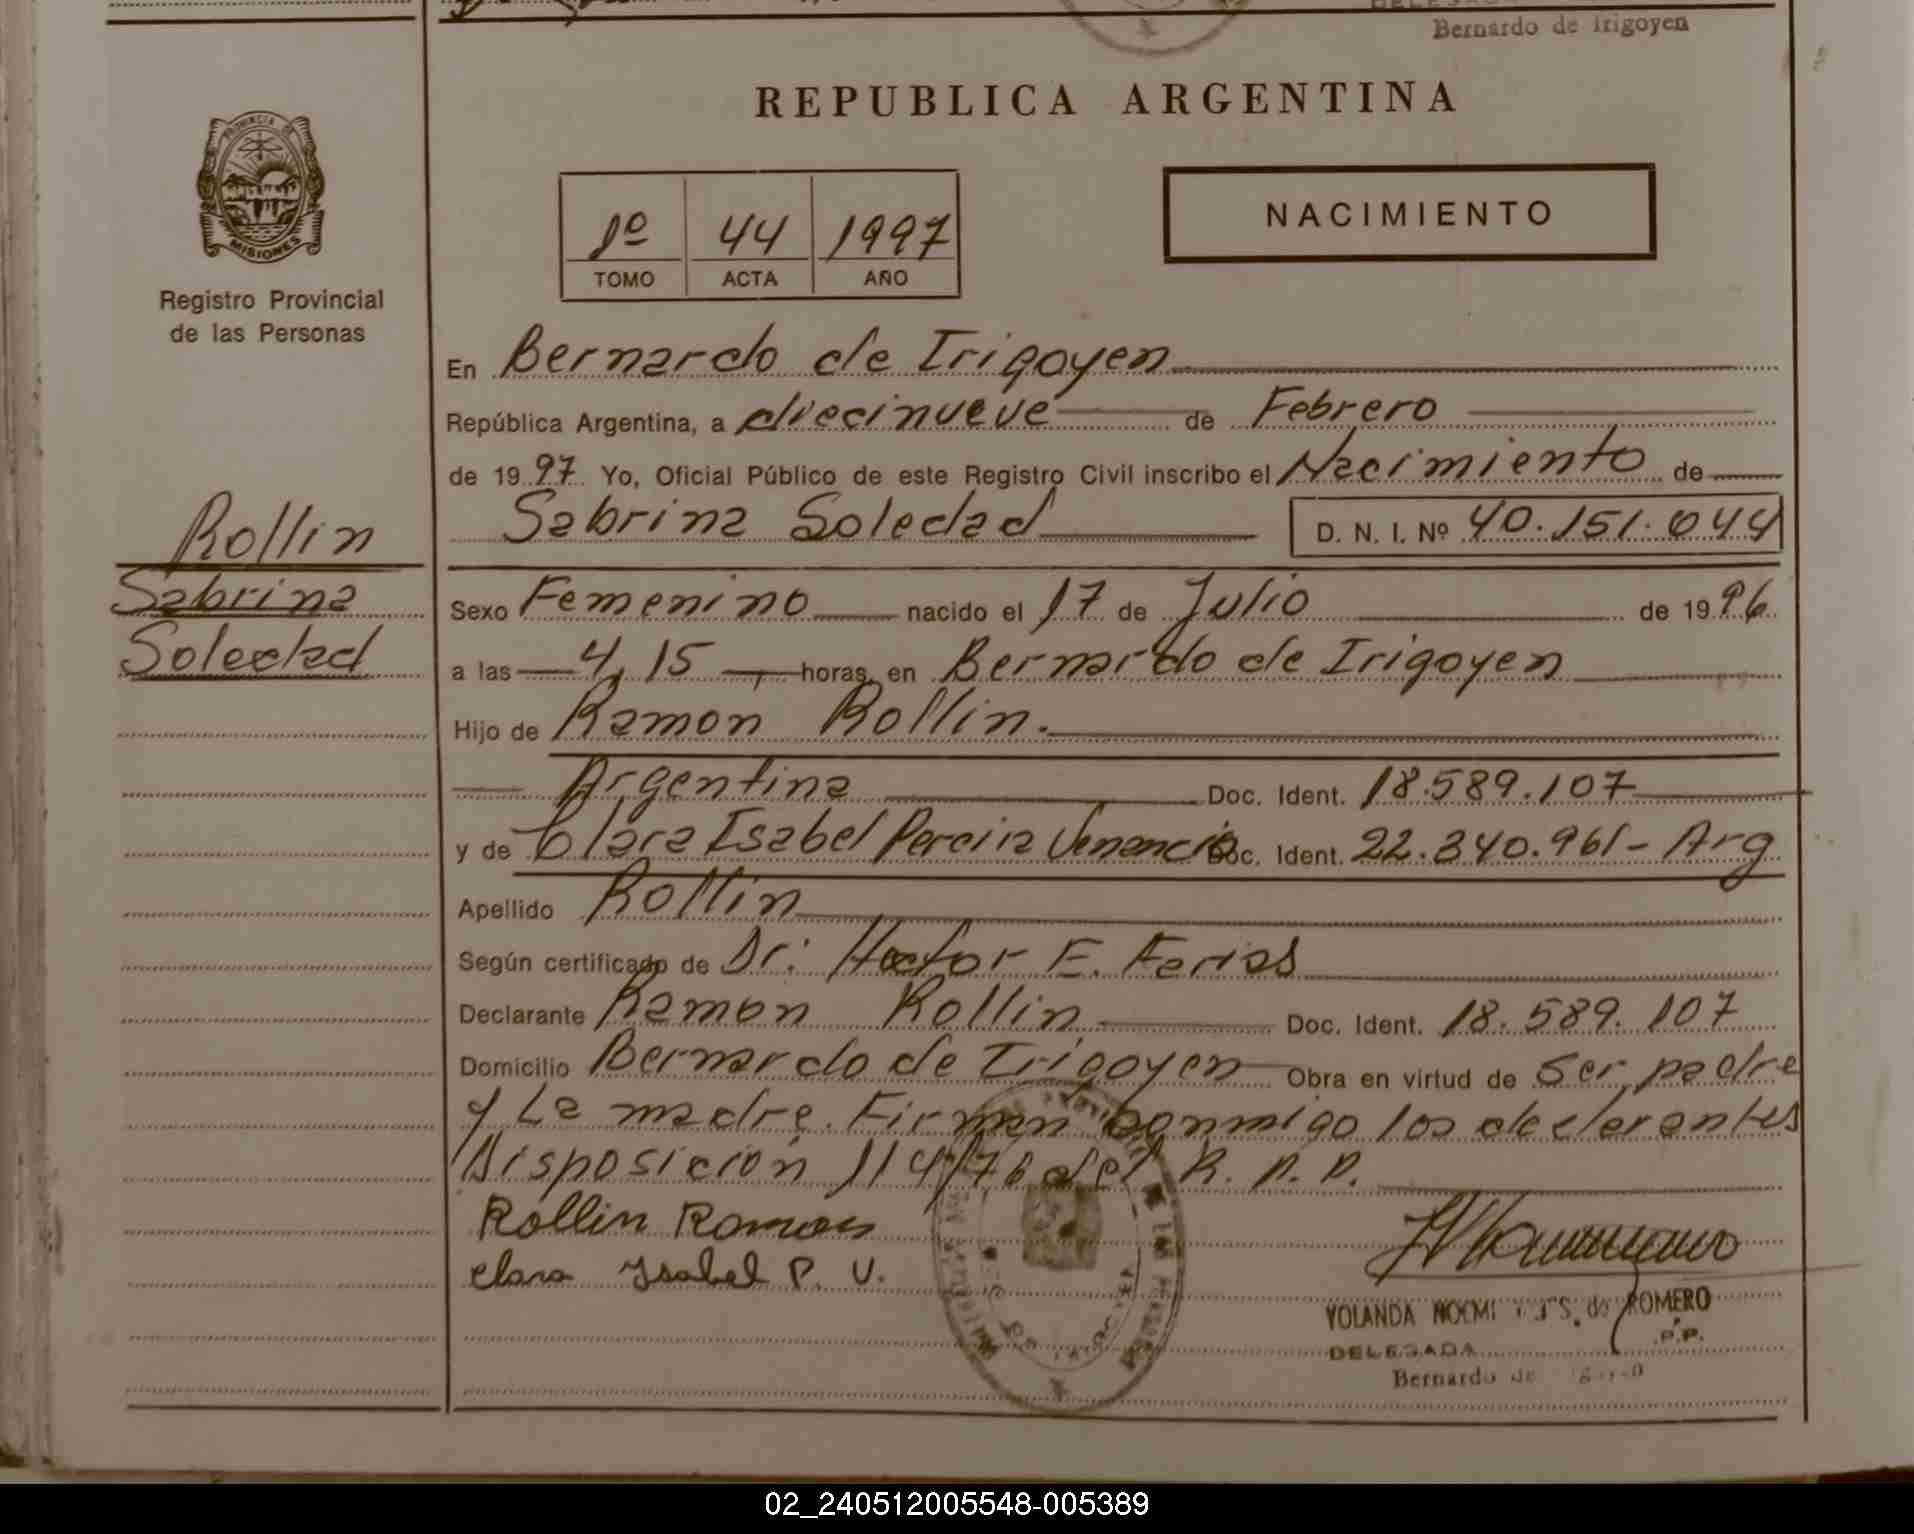 Bernardo de Irigoyen
REPUBLICA ARGENTINA
PROVINCIA DE
MISIONES
Registro Provincial
de las Personas
1º 44 1997
TOMO ACTA AÑO
NACIMIENTO
En Bernardo de Irigoyen
República Argentina, a diecinueve de Febrero
de 1997 Yo, Oficial Público de este Registro Civil inscribo el Nacimiento de
Sabrina Soledad D. N. I. Nº 40.151.044
Rollin
Sabrina
Soledad
Sexo Femenino nacido el 17 de Julio de 1996
a las 4,15 horas, en Bernardo de Irigoyen
Hijo de Ramon Rollin.
Argentina Doc. Ident. 18.589.107
y de Clara Isabel Pereira Venancio Doc. Ident. 22.340.961- Arg
Apellido Rollin
Según certificado de Dr: Hector E. Ferias
Declarante Ramon Rollin Doc. Ident. 18.589.107
Domicilio Bernardo de Irigoyen Obra en virtud de Ser padre
y La madre. Firman conmigo los declarantes
Disposición 114/76 del R. P. P.
Rollin Ramon
Clara Ysabel P. V.
YOLANDA NOEMI de ROMERO
DELEGADA P.P.
Bernardo de
02_240512005548-005389